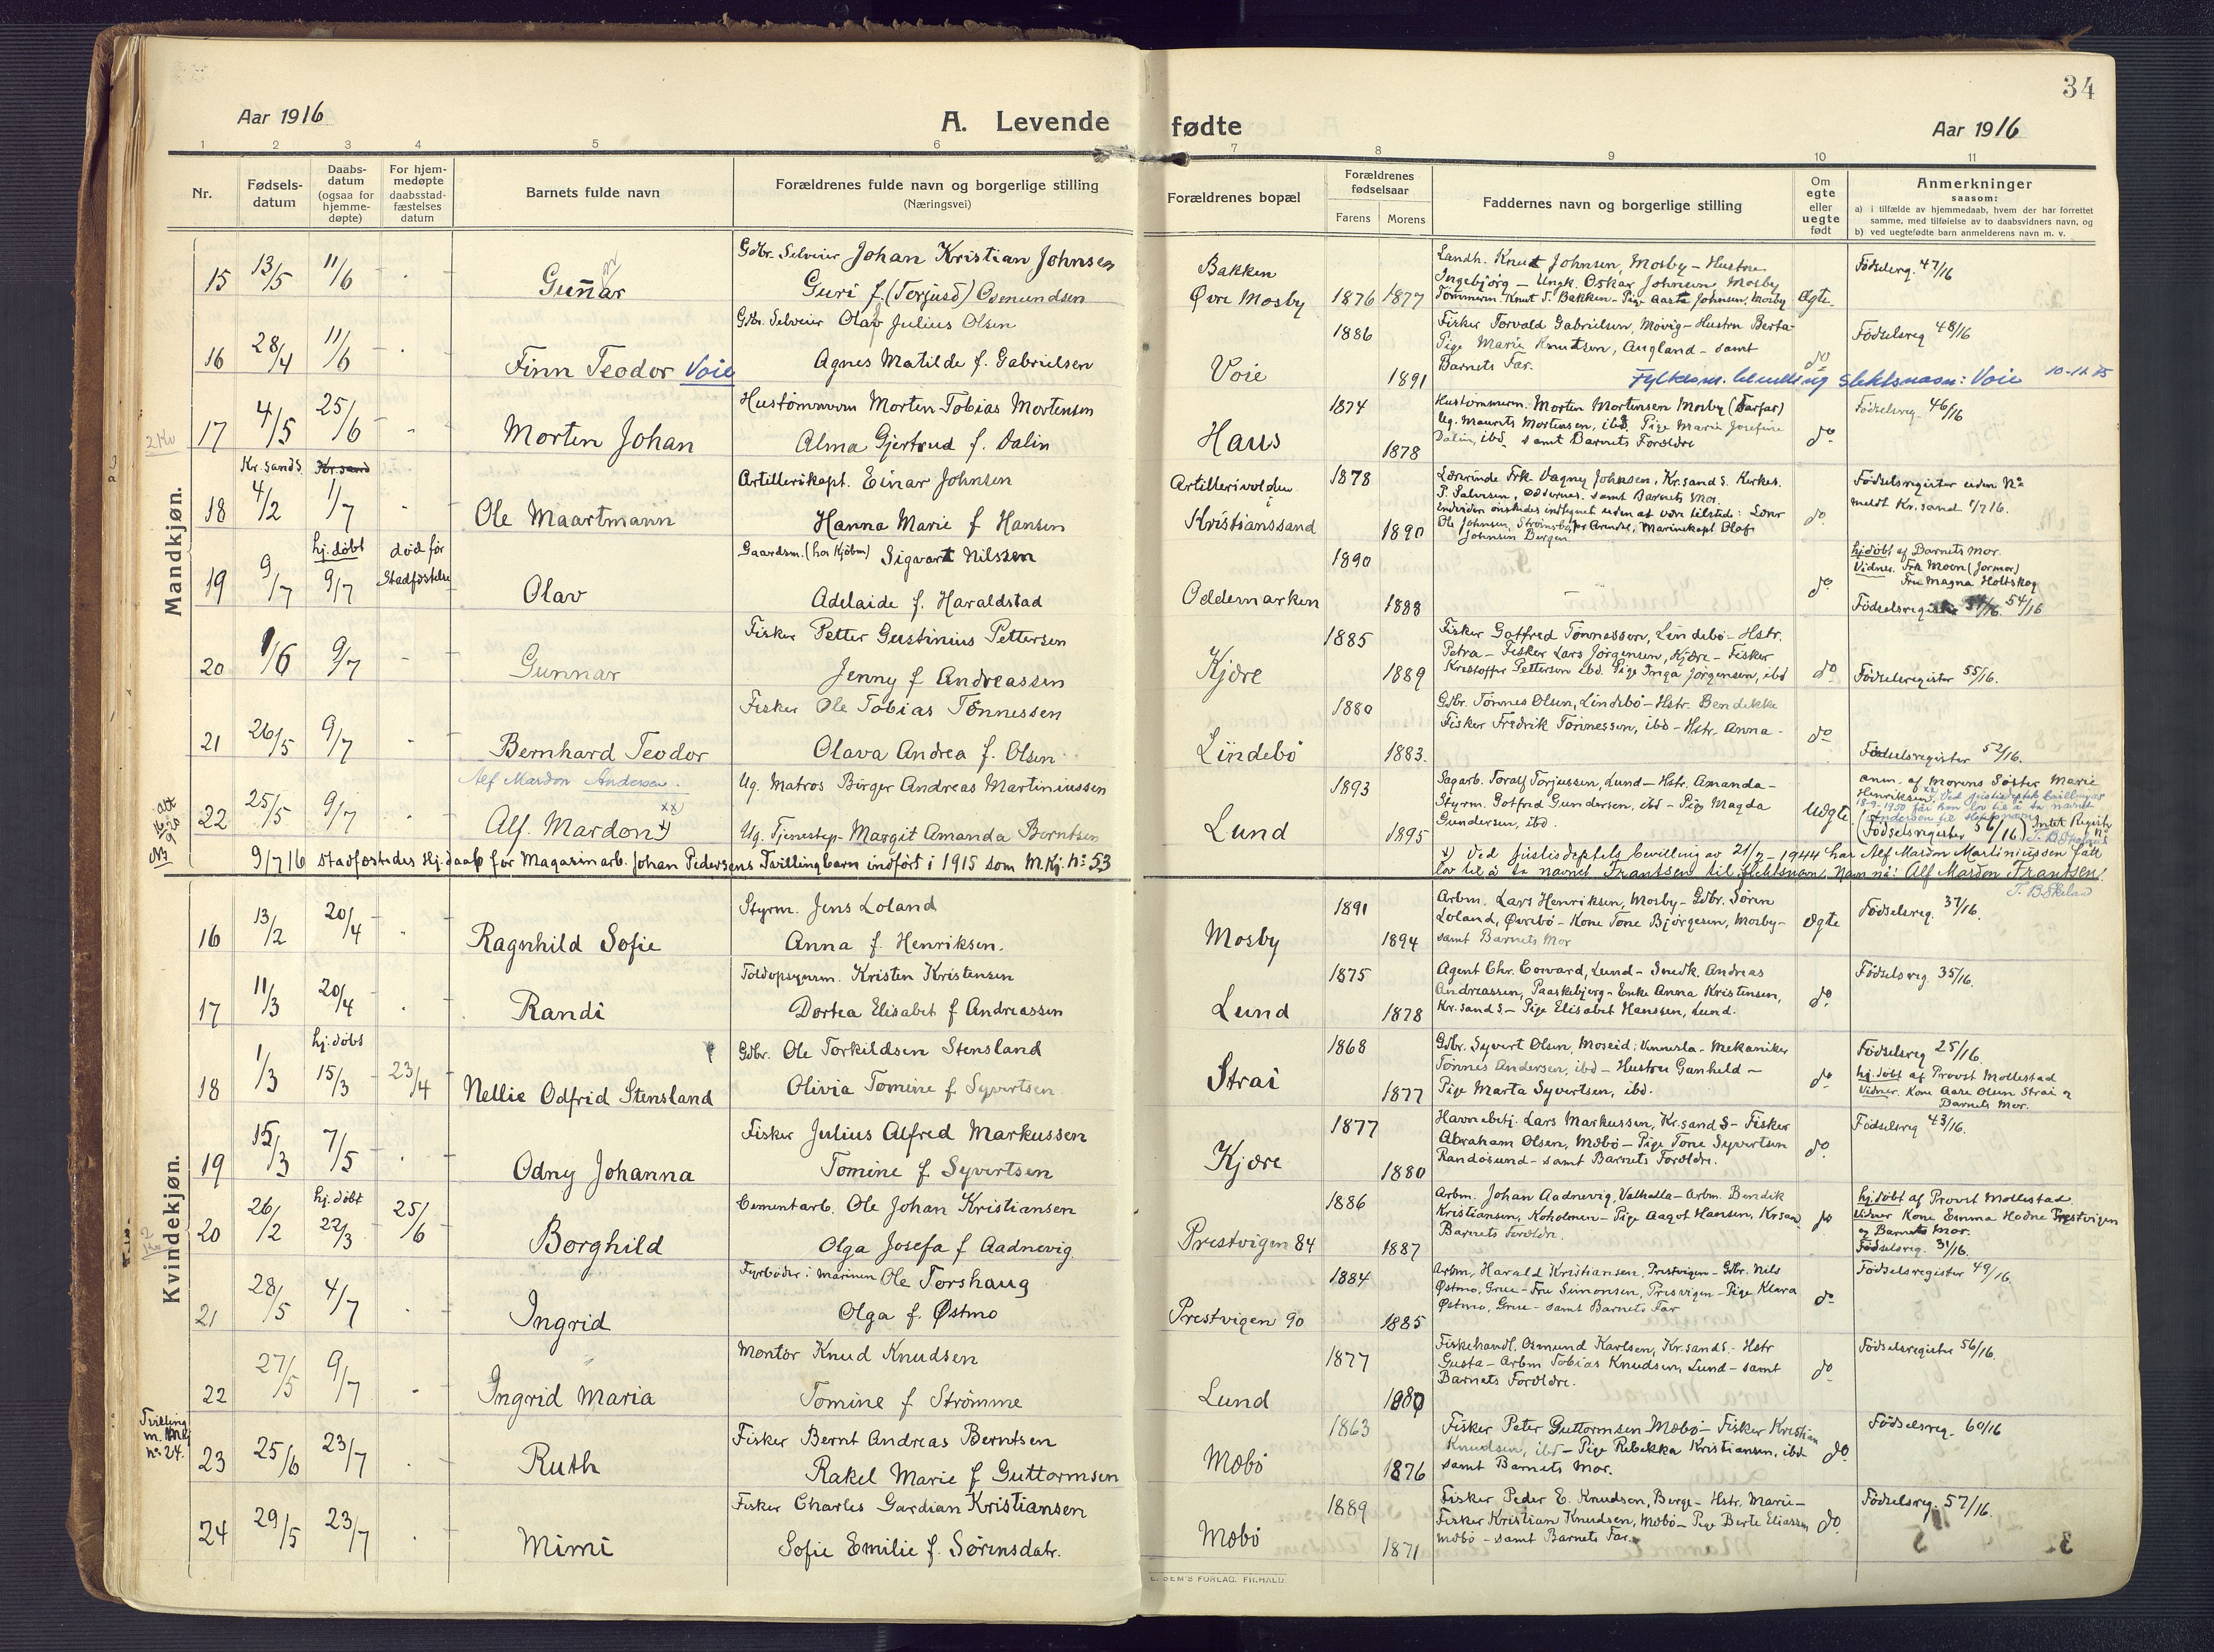 34
Aar 1916
A. Levende fødte
Aar 1916
1 2 3 4 5 6 7 8 9 10 11
Nr.
Fødsels-
datum
Daabs-
datum
(ogsaa for
hjemme-
døpte)
For hjem-
medøpte
daabsstad-
fæstelses
datum
Barnets fulde navn
Forældrenes fulde navn og borgerlige stilling
(Næringsvei)
Forældrenes bopæl
Forældrenes
fødselsaar
Farens Morens
Faddernes navn og borgerlige stilling
Om
egte
eller
uegte
født
Anmerkninger
saasom:
a) i tilfælde av hjemmedaab, hvem der har forrettet
samme, med tilføielse av to daabsvidners navn, og
b) ved uegtefødte barn anmelderens navn m. v.
Mandkjøn.
15 13/5 11/6 - Gunnar
Gdbr. Selveier Johan Kristian Johnsen
Guri f. (Torjusd) Osmundsen
Bakken
Øvre Mosby 1876 1877
Landh. Knut Johnsen, Mosby - Hustru
Ingebjørg - Ungk. Oskar Johnsen Mosby
Tømmerm. Knut T. Bakken - Pige Aasta Johnsen, Mosby
Ægte
Fødselsreg. 47/16
16 28/4 11/6 - Finn Teodor Voie
Gdbr. Selveier Olaf Julius Olsen
Agnes Matilde f. Gabrielsen
Voie 1886 1891
Fisker Torvald Gabrielsen, Møvig - Hustru Berta-
Pige Marie Knutsen, Augland - samt
Barnets Far.
do
Fødselsreg 48/16
Fylkesm. bevilling slektsnavn: Voie 10-11-
17 4/5 25/6 - Morten Johan
Hustømmerm Morten Tobias Mortensen
Alma Gjertrud f. Dalin
Haus 1874 1878
Hustømmerm. Morten Mortensen Mosby (Farfar)
Ug. Maurits Mortensen, ibd. Pige Marie Josefine
Dalin, ibd. samt Barnets Forældre
do
Fødselsreg. 46/16
Kr.sands. Kr.sand
18 4/2 1/7 - Ole Maartmann
Artillerikapt. Einar Johnsen
Hanna Marie f Hansen
Artillerivolden
i
Kristianssand 1878 1890
Lærerinde Frk. Dagny Johnsen, Kr.sand S. Kirkes.
P. Salvesen, Oddernes. samt Barnets Mor.
Endvidere ønskedes indtegnet uden at være tilstede: Lærer
Ole Johnsen, Strømsbo, pr Arendal, Marinekapt Olaf
Johnsen Bergen
do
Fødselsregister uden No
meldt Kr.sand 1/7 16.
19 9/7 hj.døbt 9/7 død før Stadfæstelse Olav
Gaardsm. (hos Kjøbm) Sigvart Nilssen
Adelaide f. Haraldstad
Oddemarken 1890 1888
-
do
hjdøbt af Barnets Mor.
Vidner. Frk Moen (Jormor)
Fru Magna Holtskog
Fødselsregister 54/16
20 1/6 9/7 - Gunnar
Fisker Petter Gustinius Pettersen
Jenny f Andreassen
Kjære 1885 1889
Fisker Gotfred Tønnessen, Lindebø - Hstr.
Petra - Fisker Lars Jørgensen, Kjære - Fisker
Kristoffer Pettersen ibd. Pige Inga Jørgensen, ibd
do
Fødselsregister 55/16.
21 26/5 9/7 - Bernhard Teodor
Fisker Ole Tobias Tønnessen
Olava Andrea f. Olsen
Lindebø 1880 1883.
Gdbr. Tønnes Olsen, Lindebø - Hstr. Bendikke
Fisker Fredrik Tønnessen, ibd - Hstr. Anna -
do
Fødselsregister 52/16.
22 25/5 9/7 - Alf Mardon Andersen.
Alf. Mardon x) xx)
Ug. Matros Birger Andreas Martiniussen
Ug. Tjenestep. Margit Amanda Berntsen
Lund 1893 1895
Sagarb. Toralf Torjussen, Lund - Hstr. Amanda -
Styrm. Gotfred Gundersen, ibd - Pige Magda
Gundersen, ibd.
Uægte
anm. af Morens Søster Marie
Henriksen. xx) Ved justisdeptets bevilling av
18-9-1950 får han lov til å ta navnet
Andersen til slektsnavn.
(Fødselsregister 56/16)
9/7 16 stadfæstedes hj.daab for Magasinarb. Johan Pedersens Tvillingbarn indført i 1915 som M.Kj. No 53
x) Ved justisdeptets bevilling av 21/2 - 1944 har Alf Mardon Martiniussen fått
lov til å ta navnet Frantsen til slektsnavn. Navn nå: Alf Mardon Frantsen.
Kvindekjøn.
16 13/2 20/4 - Ragnhild Sofie
Styrm. Jens Loland
Anna f. Henriksen.
Mosby 1891 1894
Arbm. Lars Henriksen, Mosby - Gdbr. Søren
Loland, Øvrebø - Kone Tone Bjørgesen, Mosby -
samt Barnets Mor
Ægte
Fødselsreg. 37/16.
17 11/3 20/4 - Randi
Toldopsynsm. Kristen Kristensen
Dortea Elisabet f Andreassen
Lund 1875 1878
Agent Chr. Coward, Lund - Smedk. Andreas
Andreassen, Paaskebjerg - Enke Anna Kristensen,
Kr.sand S. - Pige Elisabet Hanssen, Lund.
do
Fødselsreg 35/16.
18 1/3 hj.døbt 15/3 23/4 Nellie Odfrid Stensland
Gdbr. Ole Torkildsen Stensland
Olivia Tomine f Syvertsen
Strai 1868 1877
Gdbr. Syvert Olsen, Moseid i Vennesla - Mekaniker
Tønnes Andersen, ibd - Hustru Gunhild -
Pige Marta Syvertsen, ibd.
do
Fødselsreg 25/16.
hj.døbt af Provst Mollestad
Vidner. Kone Aase Olsen Strai og
Barnets Mor.
19 15/3 7/5 - Odny Johanna
Fisker Julius Alfred Markussen
Tomine f Syvertsen
Kjære 1877 1880
Havnebetj. Lars Markussen, Kr.sand S - Fisker
Abraham Olsen, Mæbø - Pige Tone Syvertsen
Randøsund - samt Barnets Forældre.
do
Fødselsreg 43/16.
20 26/2 hj.døbt 22/3 25/6 Borghild
Cementarb. Ole Johan Kristiansen
Olga Josefa f Aadnevig
Prestvigen 84 1886 1887
Arbm. Johan Aadnevig, Valhalla - Arbm. Bendik
Kristiansen, Koholmen - Pige Aagot Hansen, Krsan
Barnets Forældre.
do
hj.døbt af Provst Mollestad
Vidner Kone Emma Hodne Prestvigen
og Barnets Mor.
Fødselsreg. 31/16.
21 28/5 4/7 - Ingrid
Fyrbøder i Marinen Ole Torshaug
Olga f. Østmo
Prestvigen 90 1884 1885
Arbm. Harald Kristiansen, Prestvigen - Gdbr. Nils
Østmo, Grue - Fru Simonsen, Presvigen - Pige Klara
Østmo, Grue - samt Barnets Far
do
Fødselsregister 49/16.
22 27/5 9/7 - Ingrid Maria
Montør Knud Knudsen
Tomine f Strømme
Lund 1877 1880
Fiskehandl. Osmund Karlsen, Kr.sand S. - Hstr
Gusta - Arbm Tobias Knudsen, Lund - samt
Barnets Forældre.
do
Fødselsregister 56/16.
Tvilling
m. Mkj
no 24.
23 25/6 23/7 - Ruth
Fisker Bernt Andreas Berntsen
Rakel Marie f Guttormsen
Mæbø 1863 1876
Fisker Peter Guttormsen Mæbø - Fisker Kristian
Knudsen, ibd - Pige Rebekka Kristiansen, ibd
samt Barnets Mor.
do
Fødselsreg. 60/16
24 29/5 23/7 - Mimi
Fisker Charles Gardian Kristiansen
Sofie Emilie f. Sørensdatr.
Mæbø 1889 1871
Fisker Peder E. Knudsen, Berge - Hstr. Marie -
Fisker Kristian Knudsen, Mæbø - Pige Berte Eliassen
Mæbø - samt Barnets Far.
do
Fødselsreg. 57/16.
E. SEM'S FORLAG. FR.HALD.